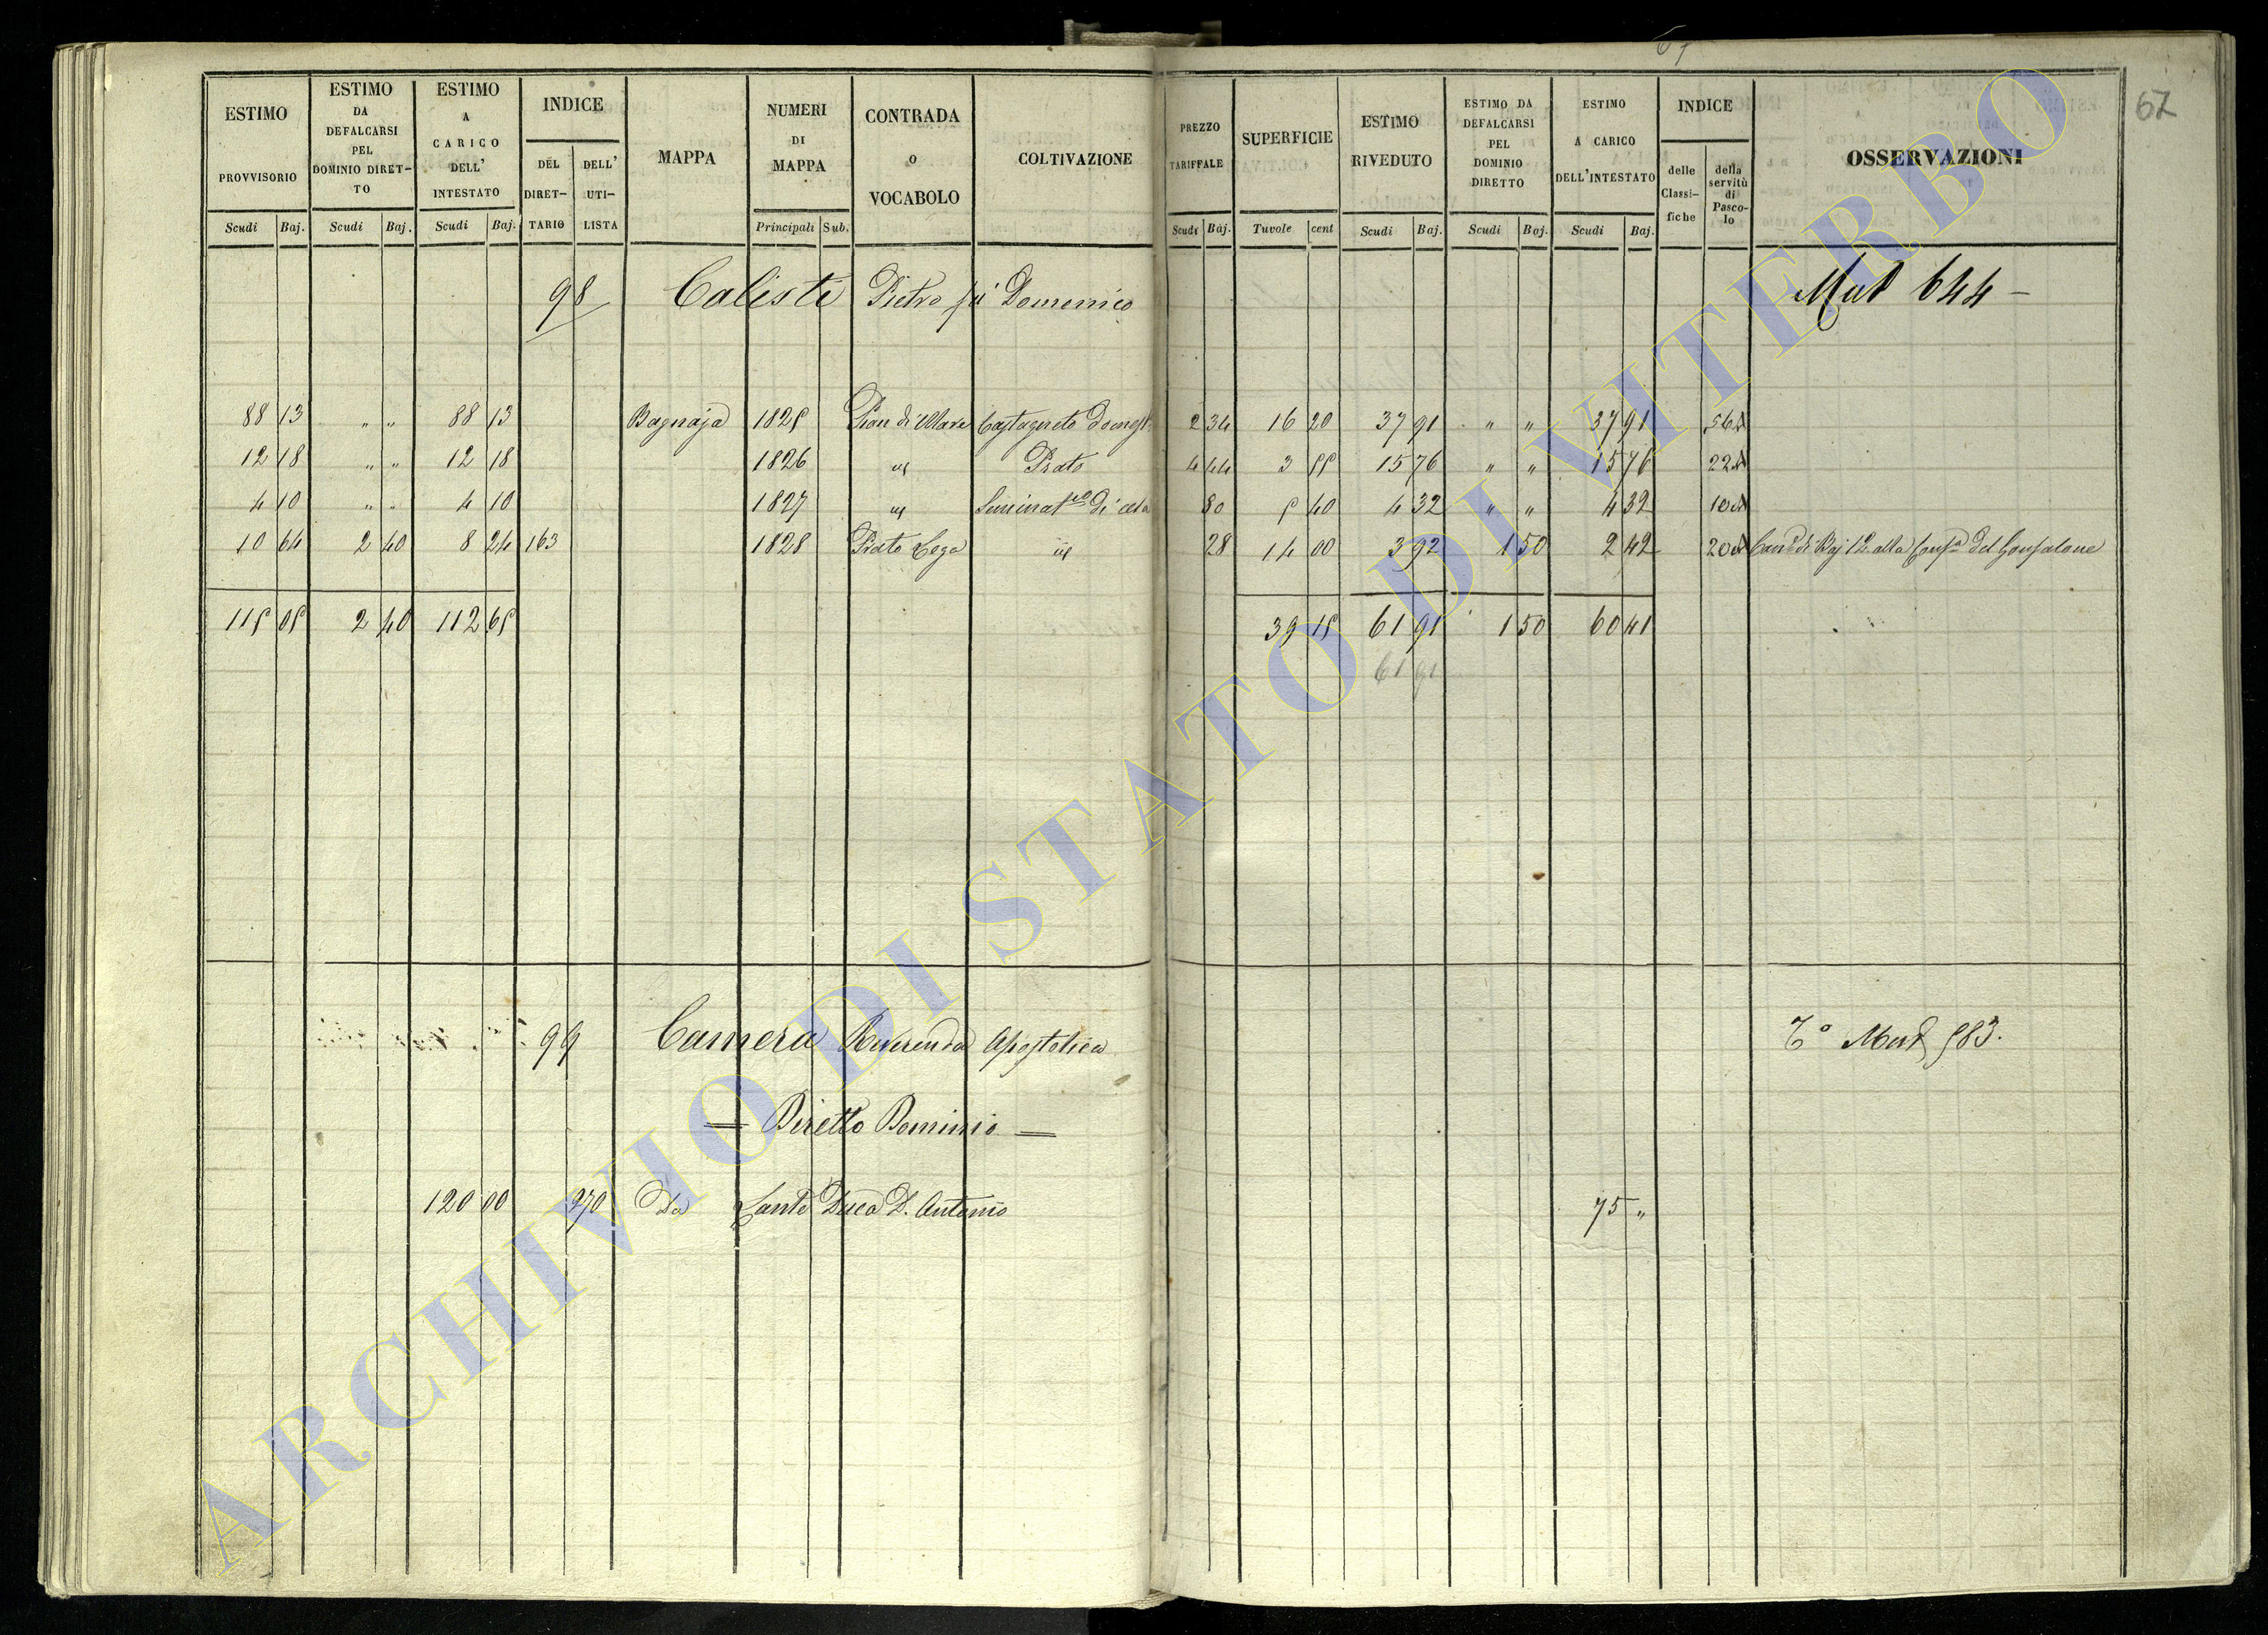 67
67
ESTIMO PROVVISORIO | ESTIMO DA DEFALCARSI PEL DOMINIO DIRET-TO | ESTIMO A CARICO DELL' INTESTATO | INDICE DEL DIRET-TARIO | DELL' UTI-LISTA | MAPPA | NUMERI DI MAPPA | CONTRADA O VOCABOLO | COLTIVAZIONE | PREZZO TARIFFALE | SUPERFICIE | ESTIMO RIVEDUTO | ESTIMO DA DEFALCARSI PEL DOMINIO DIRETTO | ESTIMO A CARICO DELL'INTESTATO | INDICE delle Classi-fiche | della servitù di Pasco-lo | OSSERVAZIONI
Scudi Baj. | Scudi Baj. | Scudi Baj. | Principali Sub. | Scudi Baj. | Tavole cent | Scudi Baj. | Scudi Baj. | Scudi Baj.
98 Calisti Pietro fu Domenico Mut 644 –
88 13 " " 88 13 Bagnaja 1825 Pian di Castagneto domest. 2 34 16 20 37 91 " " 37 91 56
12 18 " " 12 18 1826 id Prato 4 44 3 55 15 76 " " 15 76 22
4 10 " " 4 10 1827 id Seminat 80 5 40 4 32 " " 4 32 10
10 64 2 40 8 24 163 1828 Prato id 28 14 00 3 92 1 50 2 42 20 di Baj 12 alla del Gonfalone
115 05 2 40 112 65 39 15 61 91 1 50 60 41
61 91
99 Camera Reverenda Apostolica Tº Mut 583.
= Diretto Dominio =
120 00 270 Da Lante Duca D. Antonio 75 "
ARCHIVIO DI STATO DI VITERBO